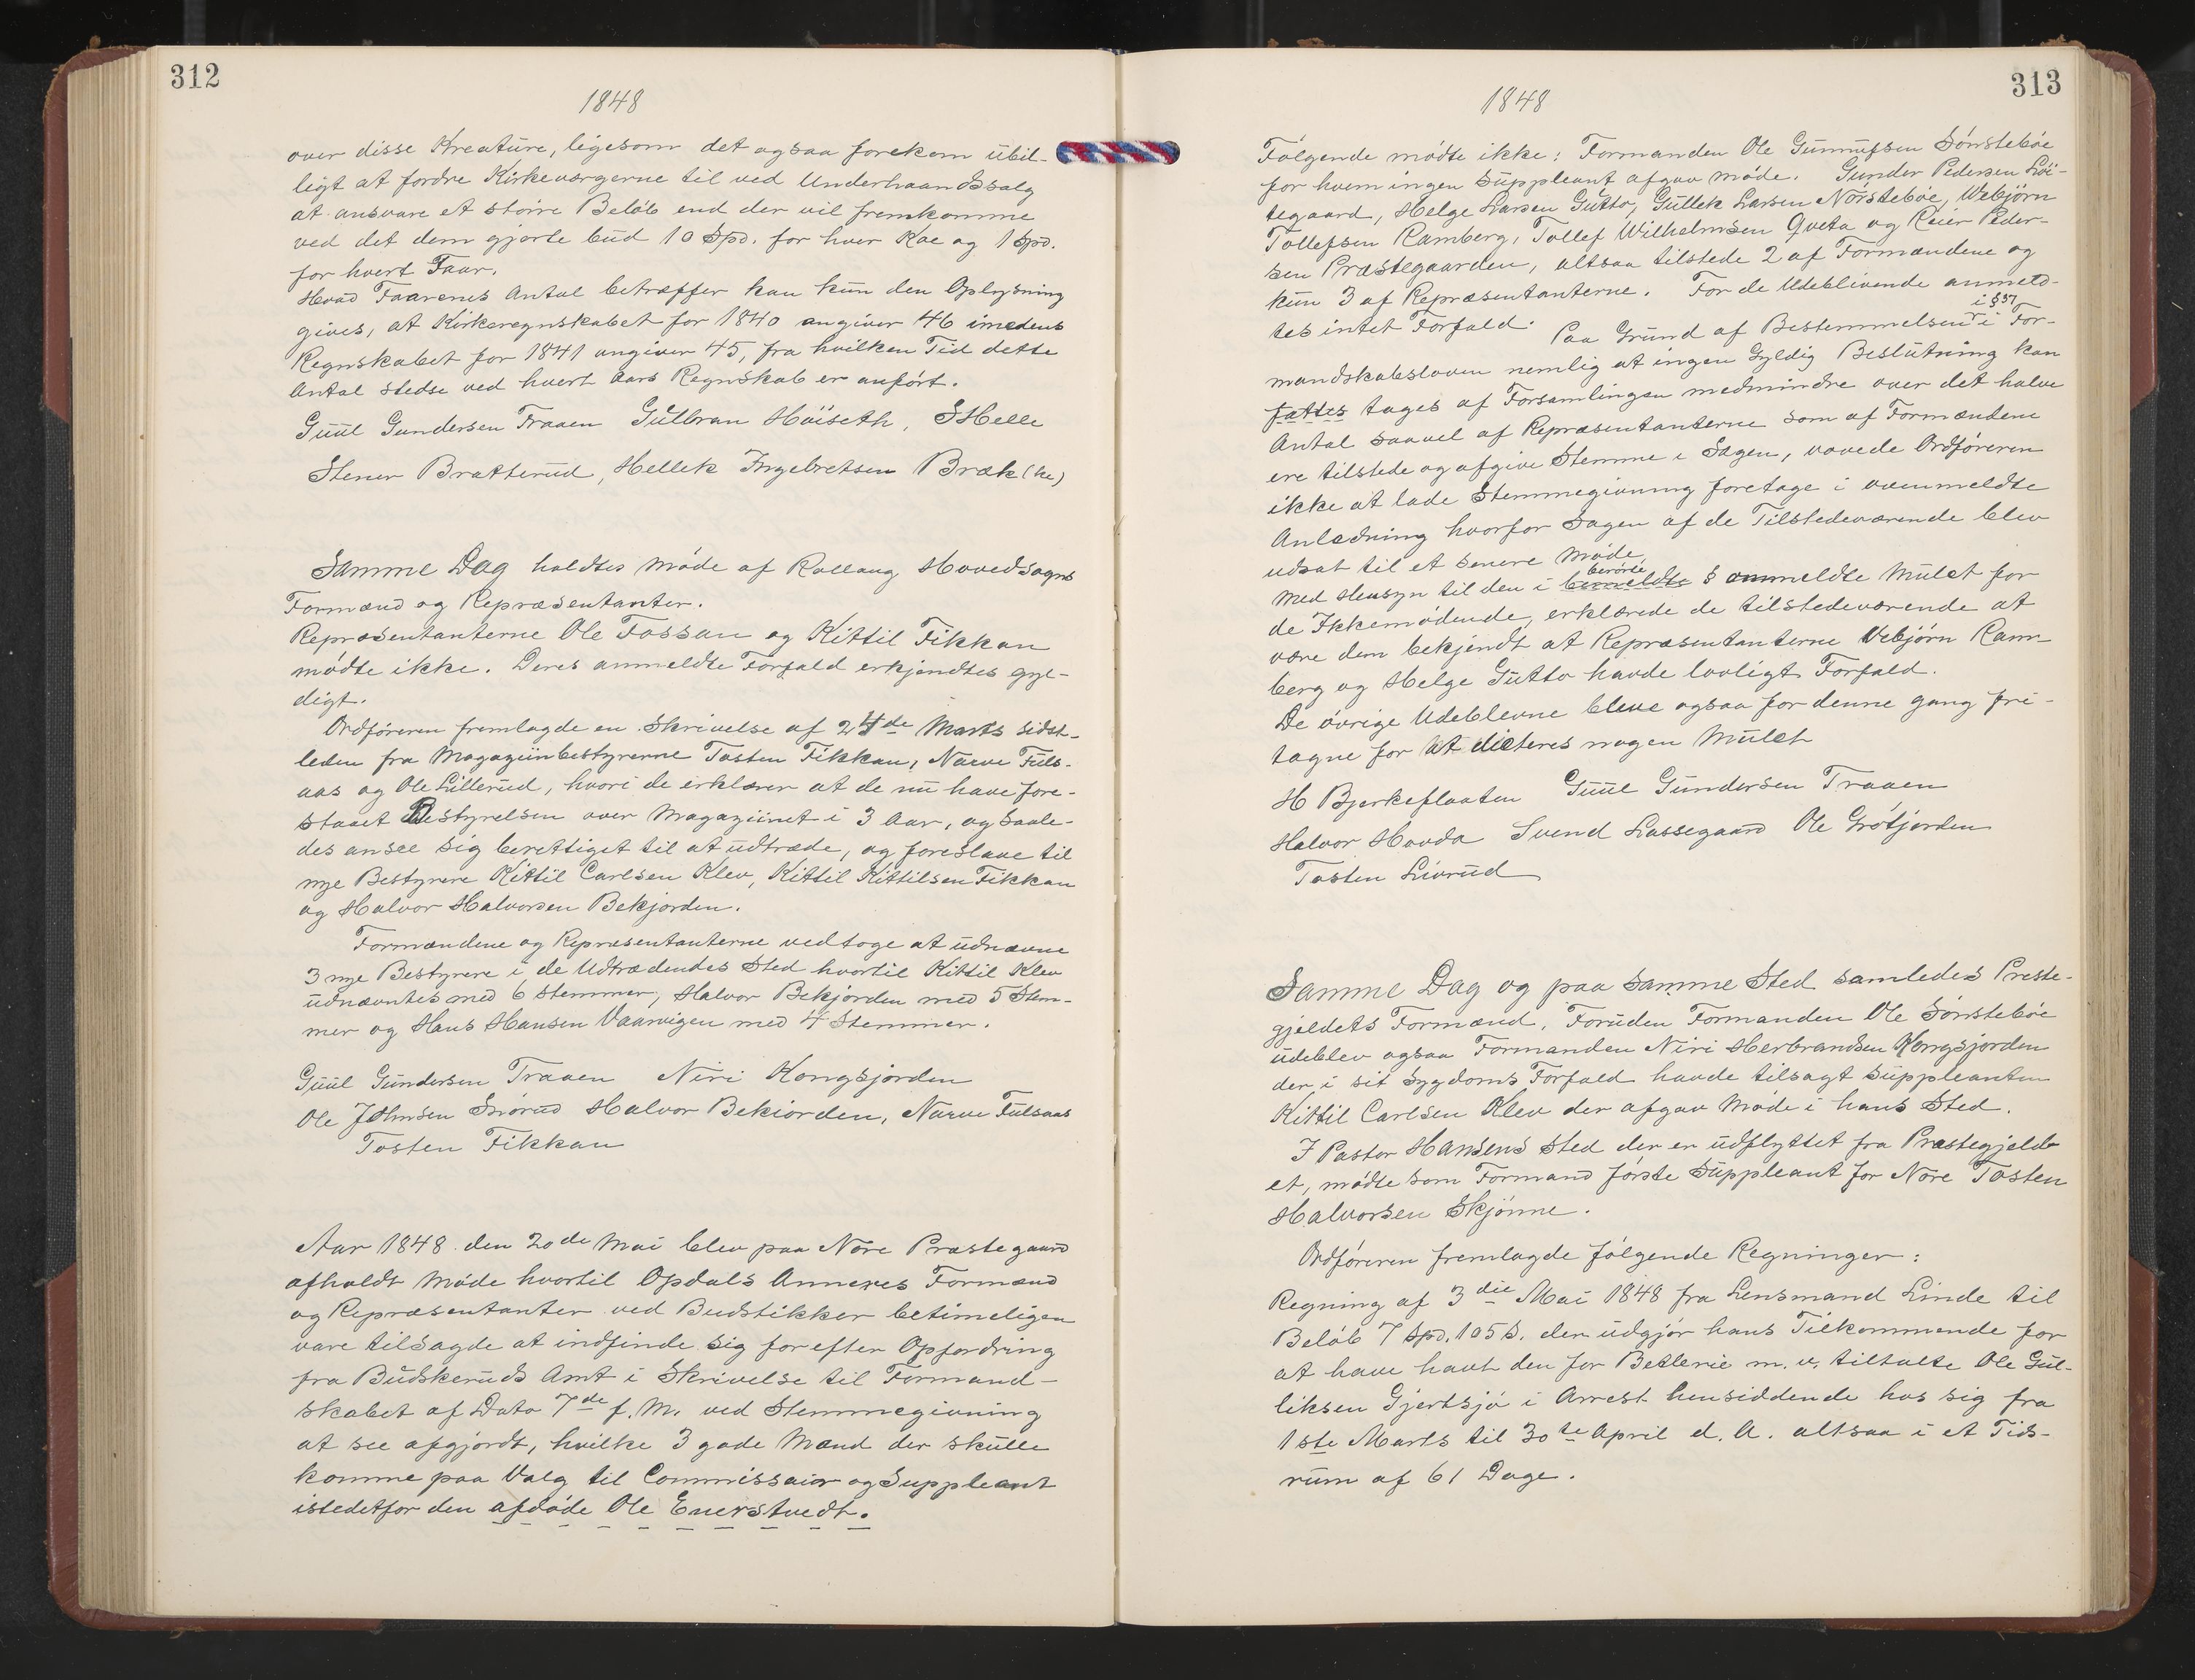 312
1848
over disse Kreature, ligesom det ogsaa forekom ubil-
ligt at fordre Kirkeværgerne til ved Underhaandssalg
at ansvare et større Beløb end der vil fremkomme
ved det dem gjorte bud 10 Spd. for hver Koe og 1 Spd.
for hvert Faar.
Hvad Faarenes Antal betræffer kan kun den Oplysning
gives, at Kirkeregnskabet for 1840 angiver 46 imedens
Regnskabet for 1841 angiver 45, fra hvilken Tid dette
Antal stedse ved hvert Aars Regnskab er anført.
Guul Gundersen Traaen Gulbran Höiseth, SHelle
Stener Bratterud, Hellek Ingebretsen Bræk (he)
Samme Dag holdtes Møde af Rollaug Hovedsogns
Formænd og Repræsentanter.
Repræsentanterne Ole Fossan og Kittil Fikkan
mødte ikke. Deres anmeldte Forfald erkjendtes gyl-
digt.
Ordføreren fremlagde en Skrivelse af 24de Marts sidst-
leden fra Magaziinbestyrerne Tosten Fikkan, Narve Fuls-
aas og Ole Lillerud, hvori de erklærer at de nu have fore-
staaet Bestyrelsen over Magazinet i 3 Aar, og saale-
des ansee sig berettiget til at udtræde, og foreslaae til
nye Bestyrere Kittil Carlsen Klev, Kittil Kittilsen Fikkan
og Halvor Halvorsen Bekjorden.
Formændene og Repræsentanterne vedtoge at udnævne
3 nye Bestyrere i de Udtrædendes Sted hvortil Kittil Klev
udnævntes med 6 Stemmer, Halvor Bekjorden med 5 Stem-
mer og Hans Hansen Vaarvigen med 4 Stemmer.
Guul Gundersen Traaen Niri Kongsjorden
Ole Johnsen Snörud Halvor Bekiorden, Narve Fulsaas
Tosten Fikkan
Aar 1848 den 20de Mai blev paa Nore Præstegaard
afholdt Møde hvortil Opdals Annexes Formænd
og Repræsentanter ved Budstikker betimeligen
vare tilsagde at indfinde sig for efter Opfordring
fra Budskeruds Amt i Skrivelse til Formand-
skabet af Dato 7de f. M. ved Stemmegivning
at see afgjordt, hvilke 3 gode Mænd der skulle
komme paa Valg til Commissair og Suppleant
istedetfor den afdøde Ole Enerstvedt.
313
1848
Følgende mødte ikke: Formanden Ole Gunnufsen Sønstebøe
for hvem ingen Suppleant afgav møde. Gunder Pedersen Löi-
tegaard, Helge Larsen Gutto, Gullek Larsen Nørstebøe, Webjörn
Tollefsen Ramberg, Tollef Wilhelmsen Qveta og Reier Peder-
sen Præstegaarden, altsaa tilstede 2 af Formændene og
kun 3 af Repræsentanterne. For de Udeblivende anmeld-
tes intet Forfald. Paa Grund af Bestemmelsen i §37 i For-
mandskabsloven nemlig at ingen Gyldig Beslutning kan
fattes tages af Forsamlingen medmindre over det halve
Antal saavel af Repræsentanterne som af Formændene
ere tilstede og afgive Stemme i Sagen, vovede Ordføreren
ikke at lade Stemmegivning foretage i ovenmeldte
Anledning hvorfor Sagen af de Tilstedeværende blev
udsat til et senere Møde.
Med Hensyn til den i bemeldte berörte § ommeldte Mulct for
de Ikkemødende, erklærede de tilstedeværende at
være dem bekjendt at Repræsentanterne Vebjörn Ram-
berg og Helge Gutto havde lovligt Forfald.
De övrige Udeblevne bleve ogsaa for denne gang fri-
tagne for at dicteres nogen Mulct
H Bjerkeflaaten Guul Gundersen Traaen
Halvor Hovda Svend Lassegaard Ole Grötjorden
Tosten Livrud
Samme Dag og paa samme Sted samledes Preste-
gjeldets Formænd. Foruden Formanden Ole Sønstebøe
udeblev ogsaa Formanden Niri Herbrandsen Kongsjorden
der i sit Sygdoms Forfald havde tilsagt Suppleanten
Kittil Carlsen Klev der afgav Møde i hans Sted.
I Pastor Hansens Sted der er udflyttet fra Præstegjeld-
et, mødte som Formand første Suppleant for Nore Tosten
Halvorsen Skjönne.
Ordføreren fremlagde følgende Regninger:
Regning af 3die Mai 1848 fra Lensmand Linde til
Beløb 7 Spd. 105 s. der udgjør hans Tilkommende for
at have havt den for Betlerie m. v. tiltalte Ole Gul-
liksen Gjertsjø i Arrest hensiddende hos sig fra
1ste Marts til 30te April d. A. altsaa i et Tids-
rum af 61 Dage.